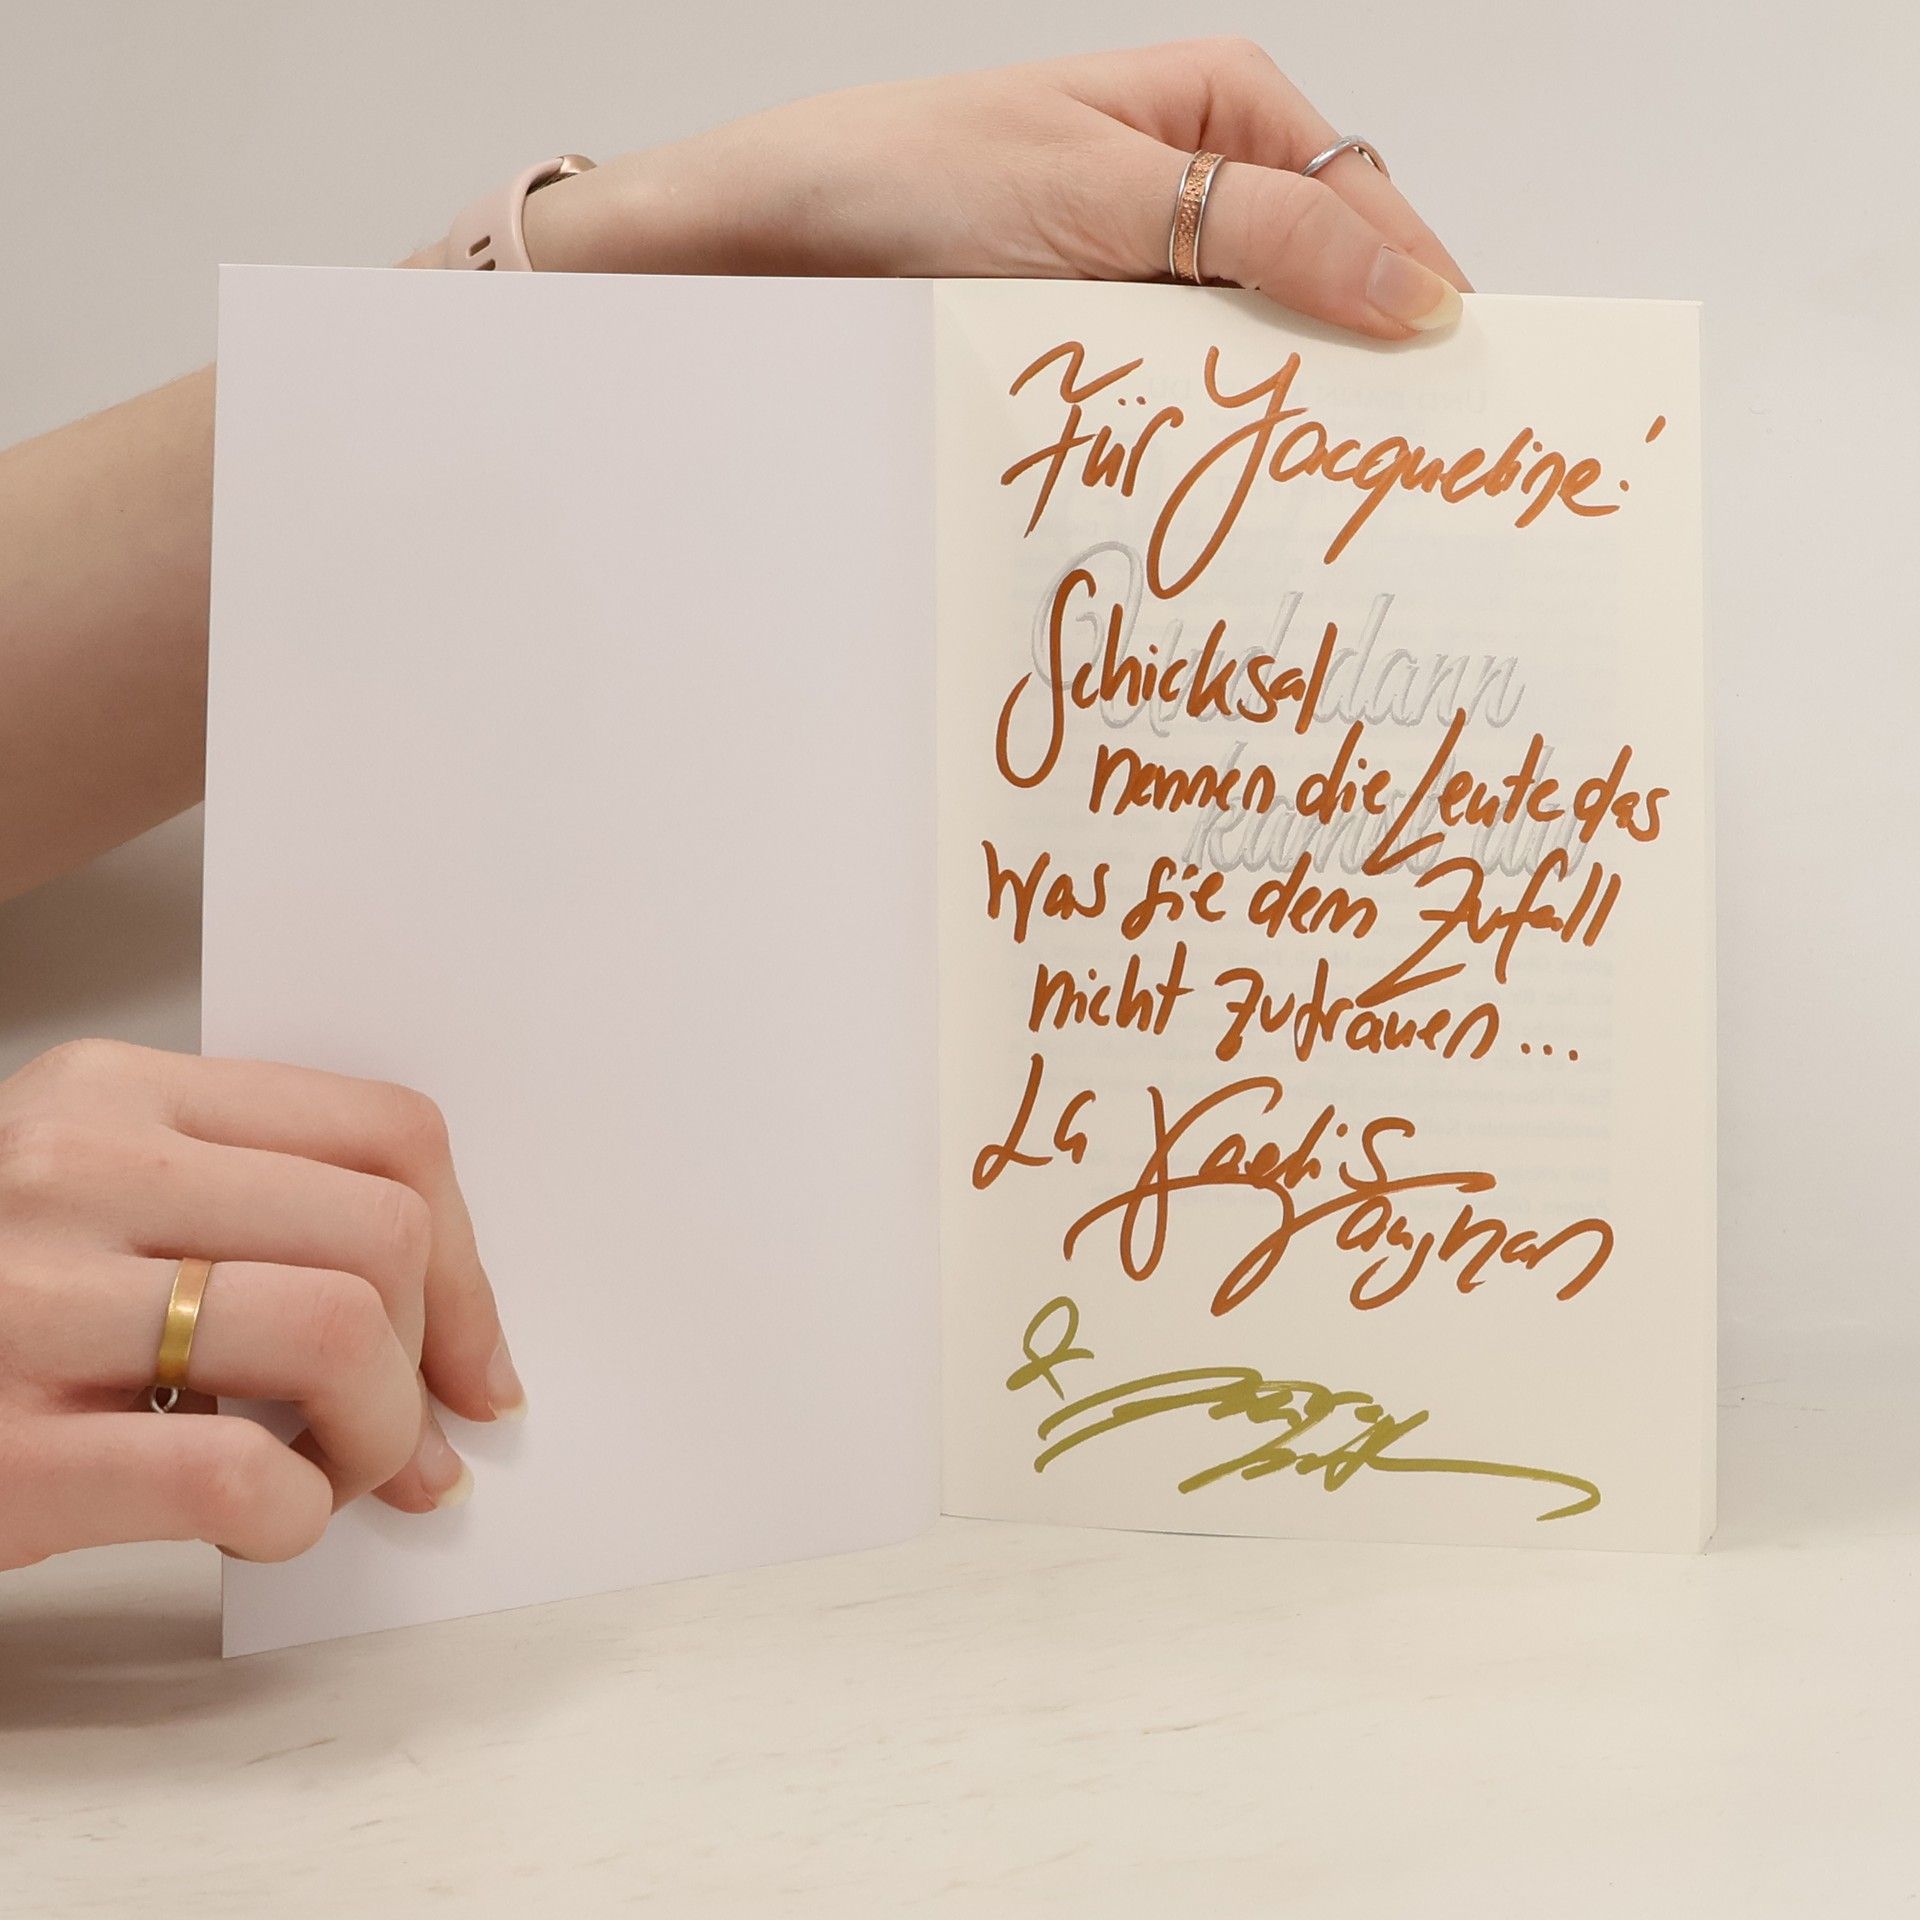 Für Jacqueline!
Und dann
Schicksal
kamst du
nennen die Leute das
was sie dem Zufall
nicht zutrauen...
La
&